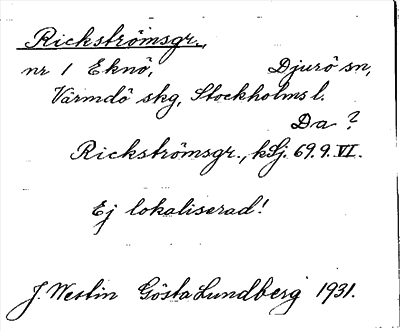 Rickströmsgr.,
nr 1 Eknö, Djurö sn,
Värmdö skg, Stockholms l.
Da ?
Rickströmsgr., kSj. 69.9.VI.
Ej lokaliserad!
J. Westin Gösta Lundberg 1931.